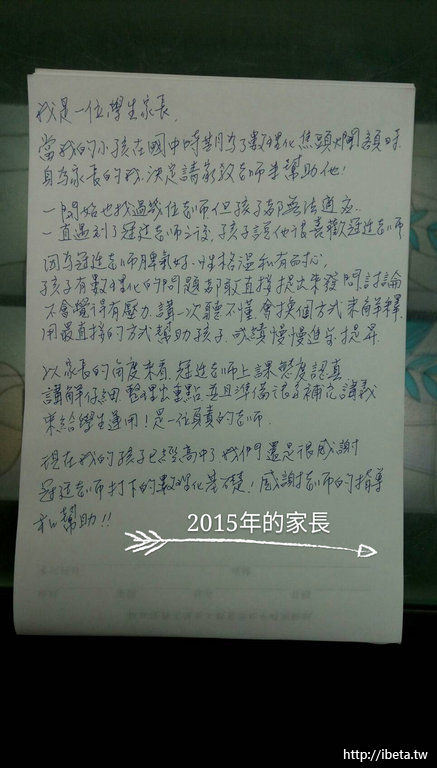 我是一位學生家長,
當我的小孩在國中時期為了數理化焦頭爛額時
身為家長的我,決定請家教老師來幫助他!
一開始也找過幾位老師但孩子都無法適應.
一直遇到了冠廷老師之後,孩子說他很喜歡冠廷老師
因為冠廷老師脾氣好、性格溫和有耐心,
孩子有數理化的問題都敢直接提出來發問討論
不會覺得有壓力,講一次聽不懂,會換個方式來解釋,
用最直接的方式幫助孩子,成績慢慢進步提昇.
以家長的角度來看,冠廷老師上課態度認真
講解仔細,整理出重點,並且準備很多補充講義
來給學生運用!是一位負責的老師.
現在我的孩子已經高中了,我們還是很感謝
冠廷老師打下的數理化基礎!感謝老師的指導
和幫助!!
2015年的家長
http://ibeta.tw